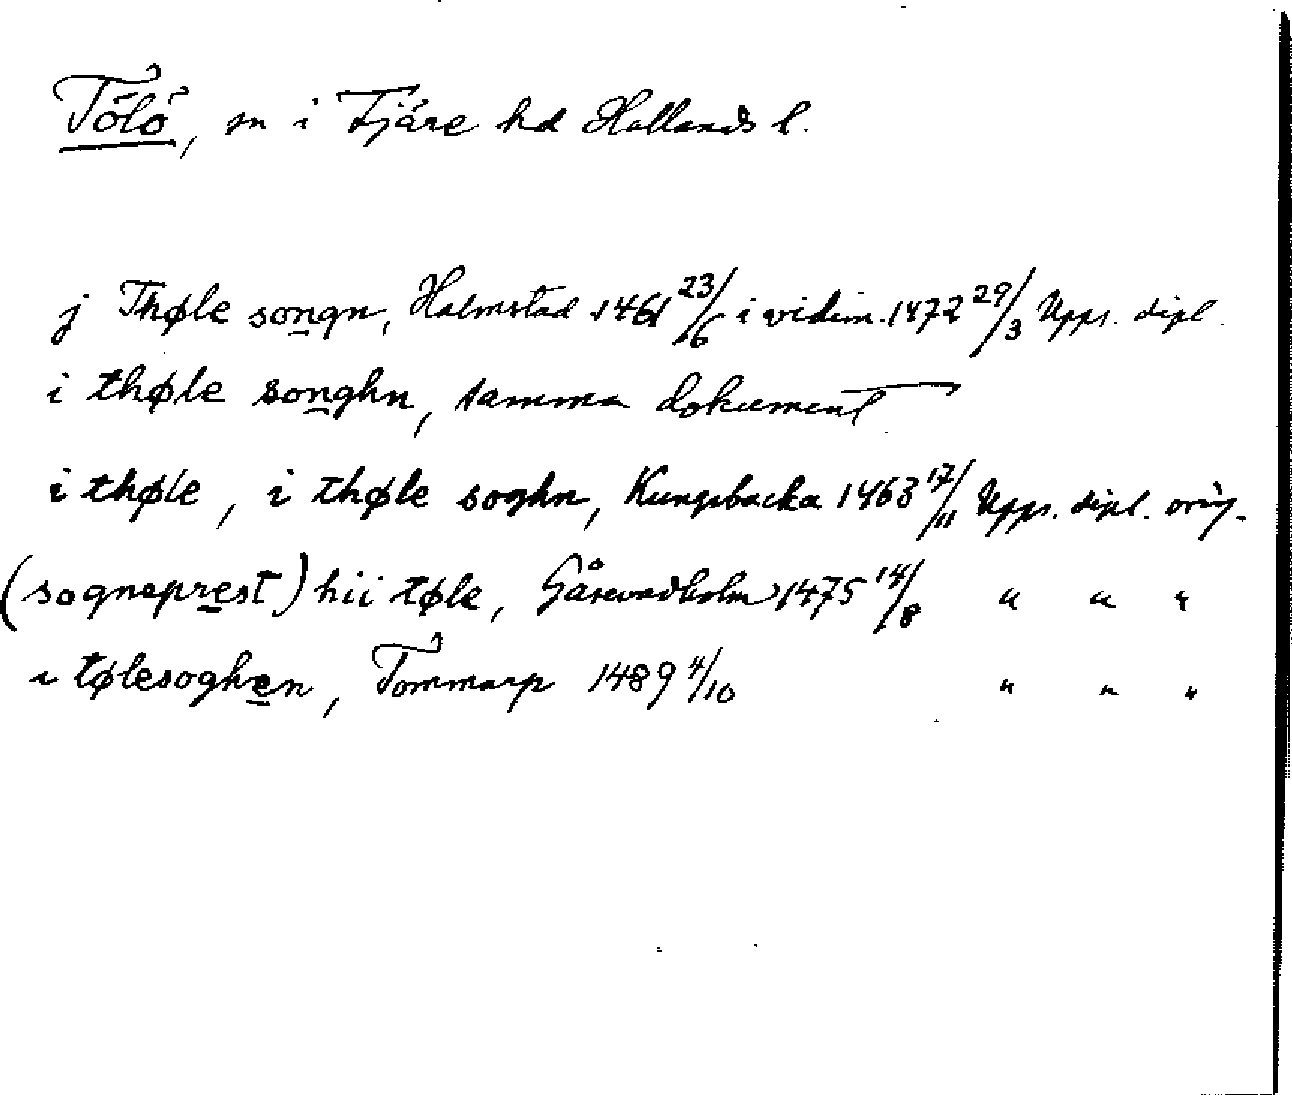 Tölö, sn i Fjäre hd Hallands l.
j Thøle songn, Halmstad 1461 23/6 i vidim. 1472 29/3 Upps. dipl.
i thøle songhn, samma dokument
i thøle, i thøle soghn, Kungsbacka 1463 17/11 Upps. dipl. orig.
(sogneprest) hii tøle, 1475 14/8 " " "
i tølesoghen, Tommarp 1489 4/10 " " "